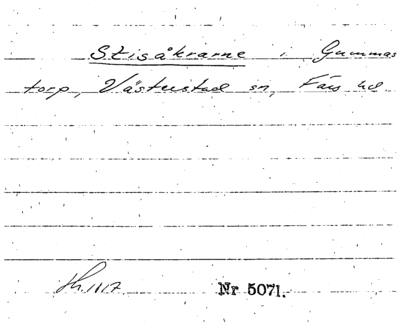 Stisåkrarne i Gummas
torp, Västerstad sn, Färs hd
1117 Nr 5071.